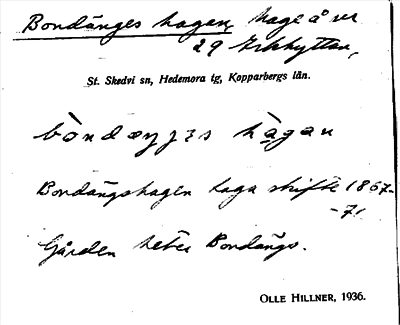 Bondänges hagen, hage å nr
29 Erkhyttan,
St. Skedvi sn, Hedemora tg, Kopparbergs län.
hàgan
Bondängshagen laga skifte 1867-
-71
Gården heter Bondängs.
OLLE HILLNER, 1936.